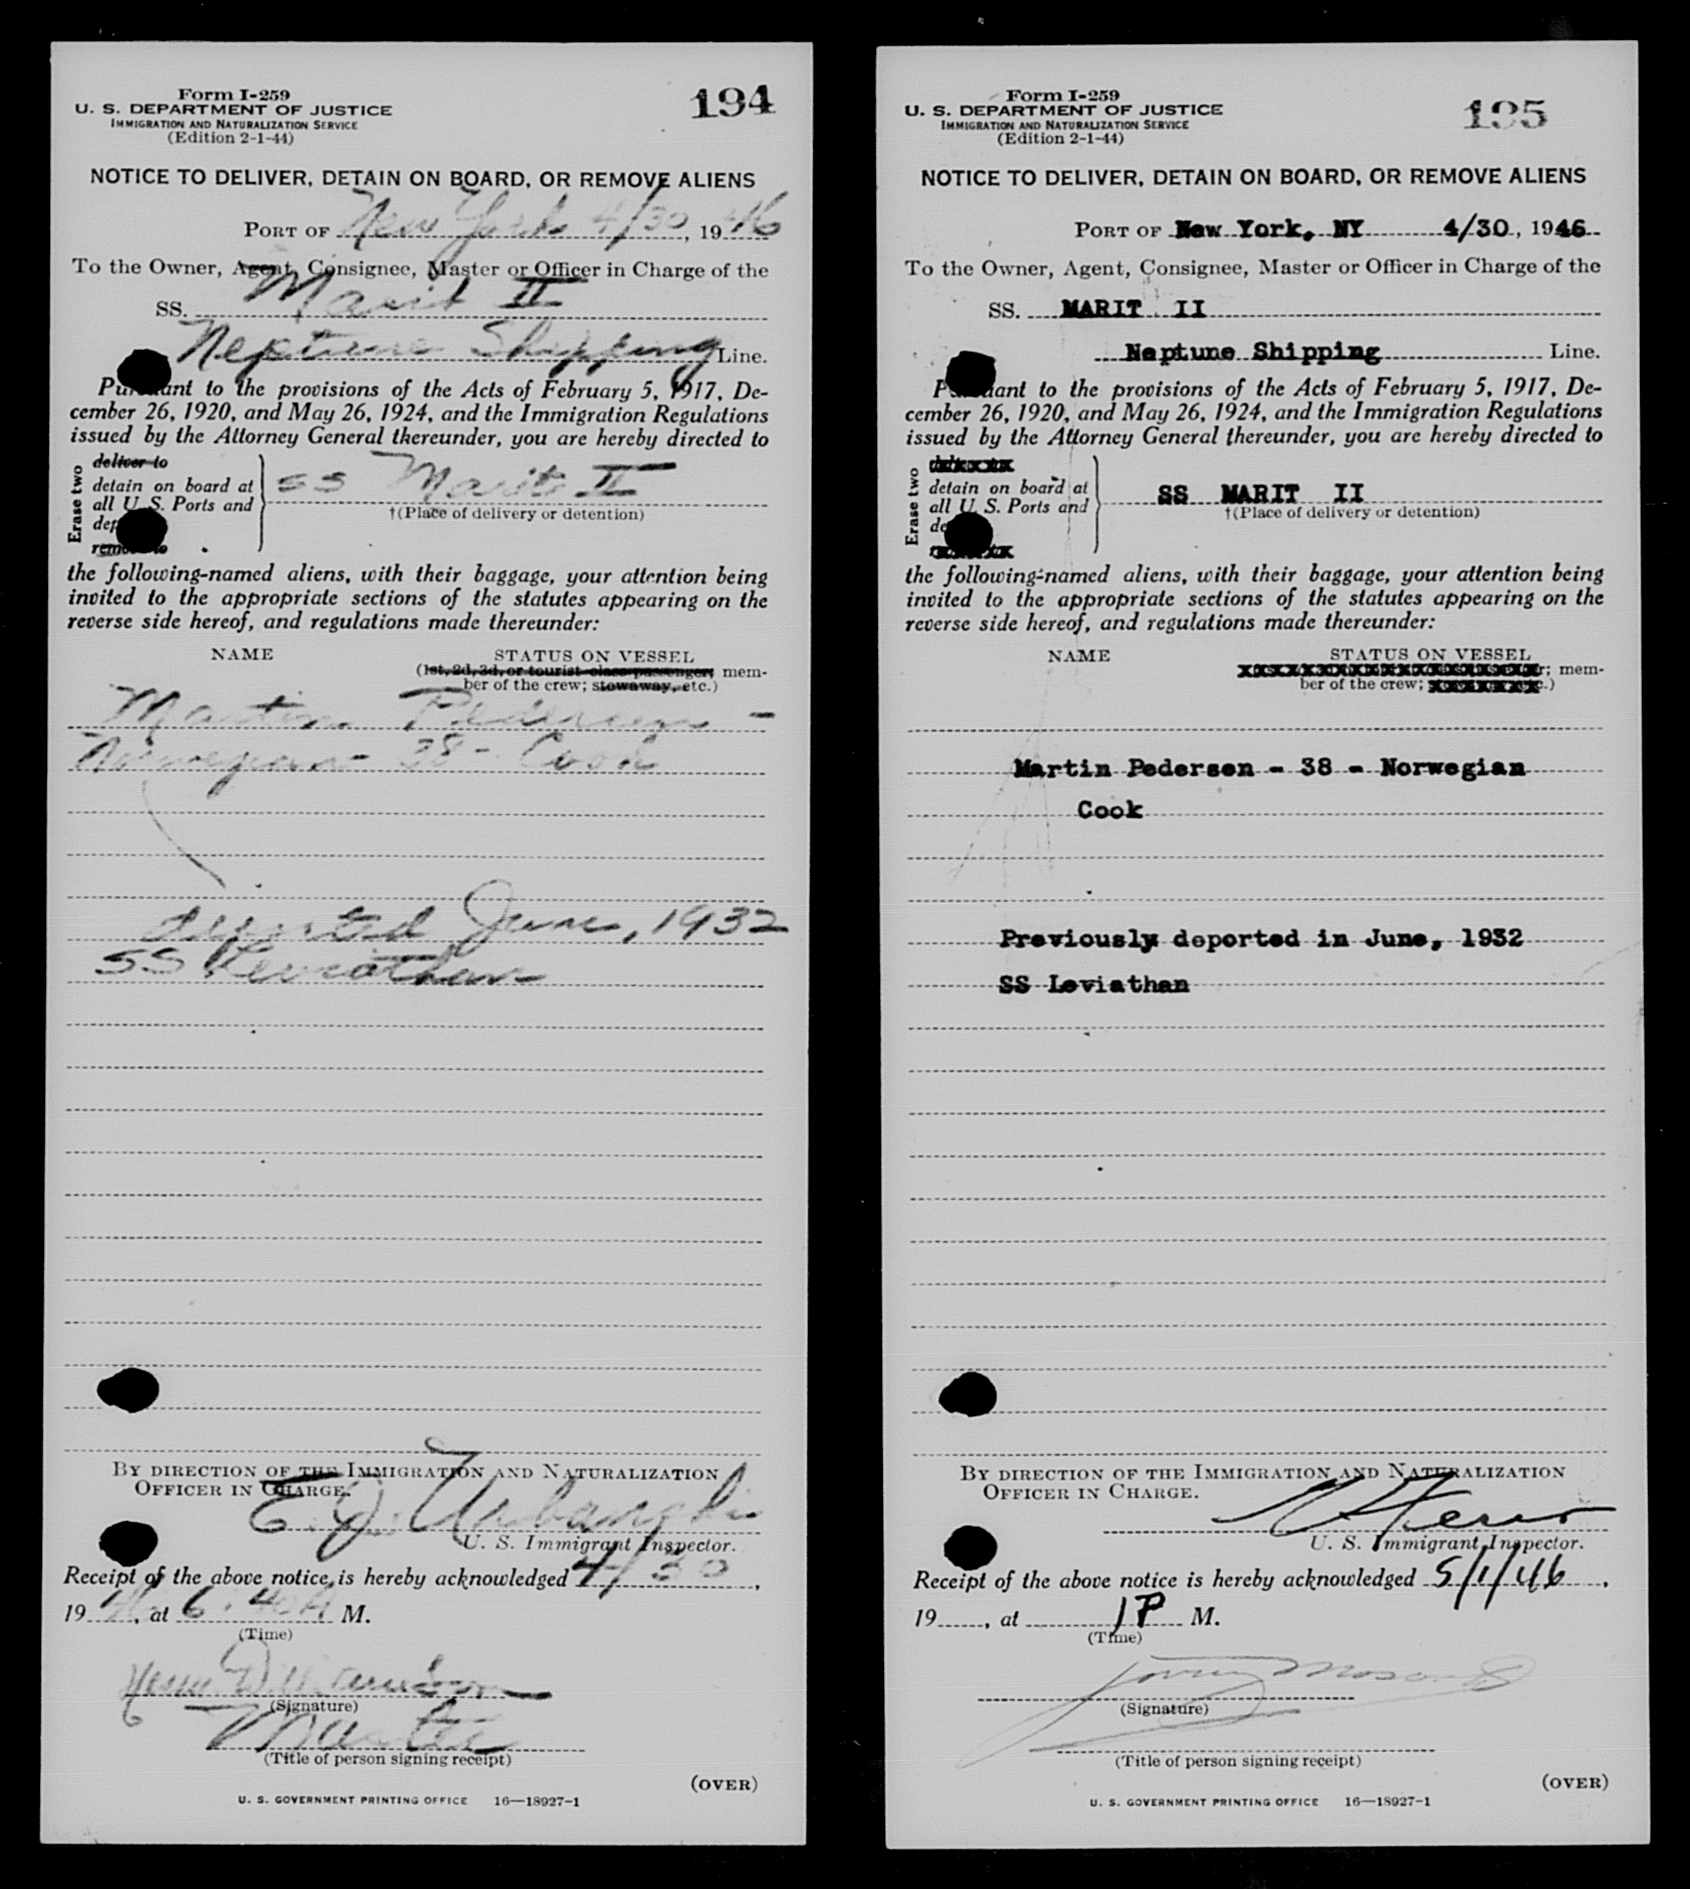 Form I-259
U. S. DEPARTMENT OF JUSTICE
IMMIGRATION AND NATURALIZATION SERVICE
(Edition 2-1-44)
194
NOTICE TO DELIVER, DETAIN ON BOARD, OR REMOVE ALIENS
PORT OF New York 4/30, 1946
To the Owner, Agent, Consignee, Master or Officer in Charge of the
SS. Marit II
Neptune Shipping Line.
Pursuant to the provisions of the Acts of February 5, 1917, De-
cember 26, 1920, and May 26, 1924, and the Immigration Regulations
issued by the Attorney General thereunder, you are hereby directed to
Erase two
deliver to
detain on board at
all U. S. Ports and
remove to
SS Marit II
†(Place of delivery or detention)
the following-named aliens, with their baggage, your attention being
invited to the appropriate sections of the statutes appearing on the
reverse side hereof, and regulations made thereunder:
NAME STATUS ON VESSEL
(1st, 2d, 3d, or tourist class passenger; mem-
ber of the crew; stowaway, etc.)
Martin Pedersen -
Norwegian - 38 - Cook
deported June, 1932
SS Leviathan
BY DIRECTION OF THE IMMIGRATION AND NATURALIZATION
OFFICER IN CHARGE.
E. J. Urbanski
U. S. Immigrant Inspector.
Receipt of the above notice is hereby acknowledged 4/30,
1946, at 6:40A M.
(Time)
(Signature)
Master
(Title of person signing receipt)
(OVER)
U. S. GOVERNMENT PRINTING OFFICE 16—18927-1
Form I-259
U. S. DEPARTMENT OF JUSTICE
IMMIGRATION AND NATURALIZATION SERVICE
(Edition 2-1-44)
195
NOTICE TO DELIVER, DETAIN ON BOARD, OR REMOVE ALIENS
PORT OF New York, NY 4/30, 1946
To the Owner, Agent, Consignee, Master or Officer in Charge of the
SS. MARIT II
Neptune Shipping Line.
Pursuant to the provisions of the Acts of February 5, 1917, De-
cember 26, 1920, and May 26, 1924, and the Immigration Regulations
issued by the Attorney General thereunder, you are hereby directed to
Erase two
detain on board at
all U. S. Ports and
SS MARIT II
†(Place of delivery or detention)
the following-named aliens, with their baggage, your attention being
invited to the appropriate sections of the statutes appearing on the
reverse side hereof, and regulations made thereunder:
NAME STATUS ON VESSEL
; mem-
ber of the crew; .)
Martin Pedersen - 38 - Norwegian
Cook
Previously deported in June, 1932
SS Leviathan
BY DIRECTION OF THE IMMIGRATION AND NATURALIZATION
OFFICER IN CHARGE.
U. S. Immigrant Inspector.
Receipt of the above notice is hereby acknowledged 5/1/46,
19, at 1P M.
(Time)
(Signature)
(Title of person signing receipt)
(OVER)
U. S. GOVERNMENT PRINTING OFFICE 16—18927-1